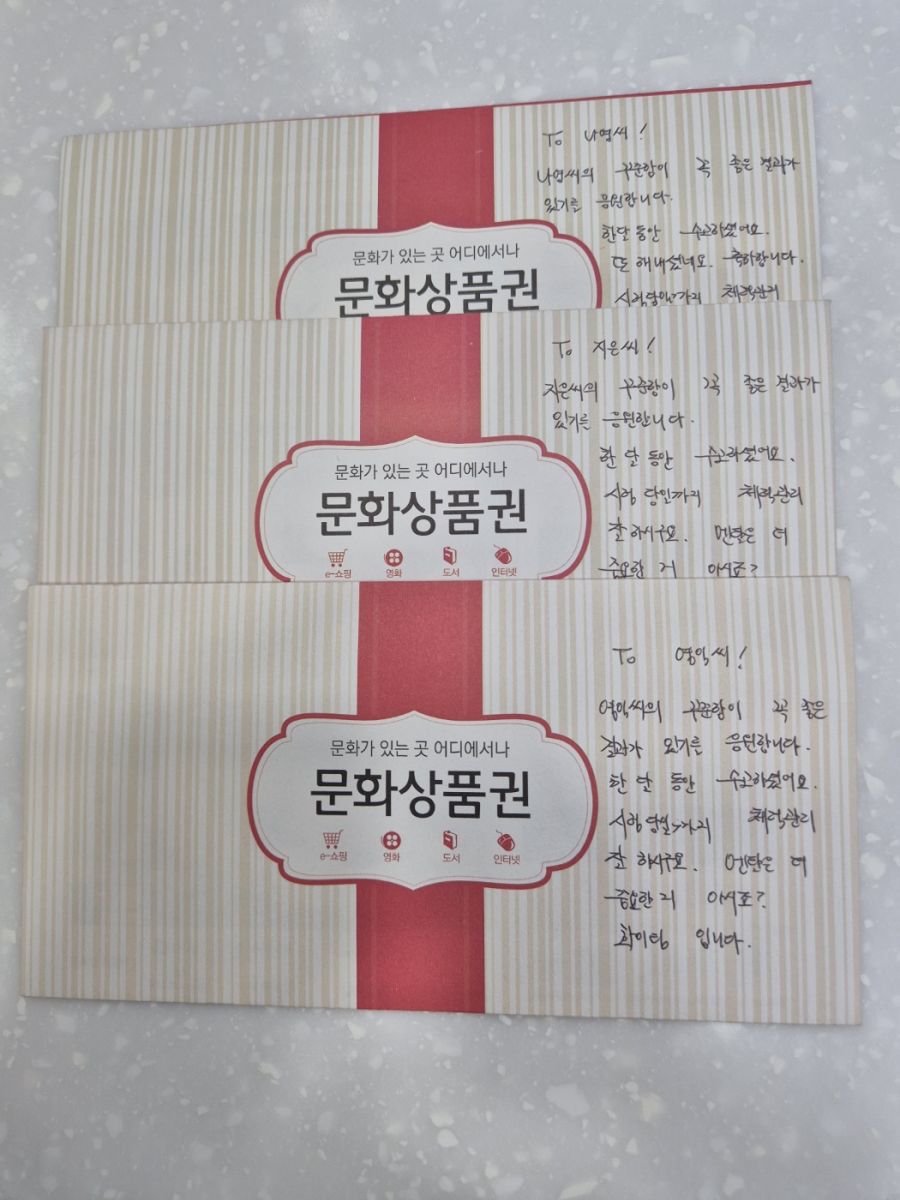 To 나영씨!
나영씨의 꾸준함이 꼭 좋은 결과가
있기를 응원합니다.
한달 동안 수고하셨어요.
또 해내셨네요. 축하합니다.
시험당일까지 체력관리
문화가 있는 곳 어디에서나
문화상품권
To 지은씨!
지은씨의 꾸준함이 꼭 좋은 결과가
있기를 응원합니다.
한 달 동안 수고하셨어요.
시험 당일까지 체력관리
잘 하시구요. 멘탈은 더
중요한 거 아시죠?
문화가 있는 곳 어디에서나
문화상품권
e-쇼핑 영화 도서 인터넷
To 영익씨!
영익씨의 꾸준함이 꼭 좋은
결과가 있기를 응원합니다.
한 달 동안 수고하셨어요.
시험 당일까지 체력관리
잘 하시구요. 멘탈은 더
중요한 거 아시죠?
화이팅 입니다.
문화가 있는 곳 어디에서나
문화상품권
e-쇼핑 영화 도서 인터넷